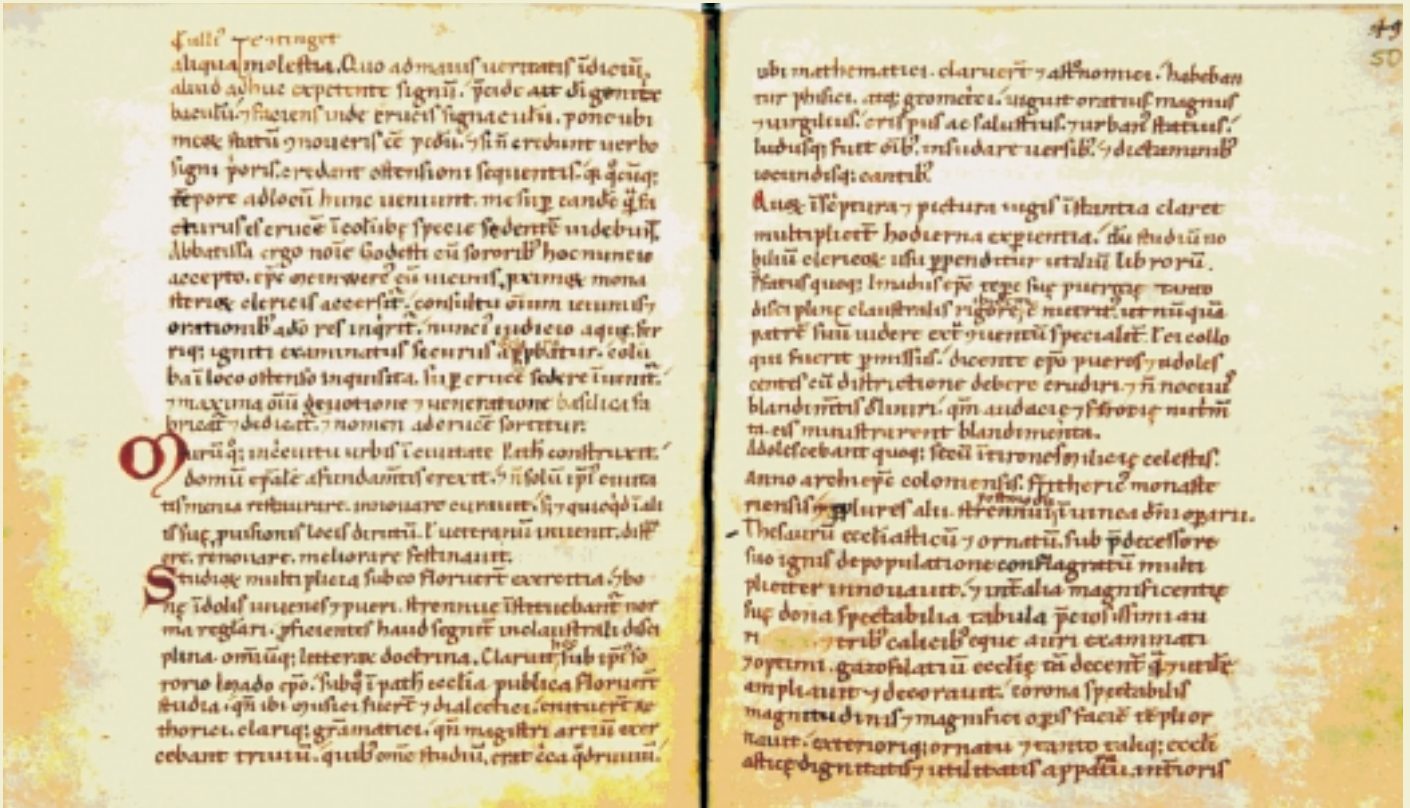 aliqua molestia. Quo ad maius ueritatis īdiciū,
aliud adhuc expetente signū. ꝑcide ait di genitꝛix
baculū. ⁊ faciens inde crucis signaculū. pone ubi
statū ⁊ noueris cē ꝑdiu. ⁊ si ñ credunt uerbo
signi p̄oris. credant ostensioni sequentis.
tēpore ad locū hunc ueniunt. me suꝑ eandē
cturus es crucē ī colūbę specie sedentē uidebūt.
Abbatissa ergo noīe Godesti cū sororibꝰ hoc nuncio
accepto. eꝑc meinwercꝰ cū uicinis. ꝓximisq; mona
steriis clericis accersit. consultu oīum ieiuniis ⁊
orationibꝰ a dō res inqrit. nunciꝰ iudicio aque fer
riq; igniti examinatus securus. colū
ba ī loco ostenso inquisita. suꝑ crucē sedere īuenit.
⁊ maxima oīū deuotione ⁊ ueneratione basilica fa
bricat̄ ⁊ dedicat̄. ⁊ nomen ad crucē sortitur.
Murū q; in circuitu urbis ī ciuitate Path construxit.
domū eꝑalē a fundam̄tis erexit. ⁊ ñ solū ipī ciuita
tis menia restaurare. innouare curauit. s; ⁊ quicqd ī ali
is suę ꝓuisionis locis dirutū. ł ueteranū inuenit.
ere. renouare. meliorare festinauit.
Studioꝝ multiplicia sub eo floruert̄ exercitia. ⁊ bo
nę īdolis iuuenes ⁊ pueri. strennue īstituebant̄ nor
ma reglari. ꝓficientes haud segnit̄ in claustrali disci
plina. omniūq; litteraꝝ doctrina. Claruit hoc sub ipī so
rorio Imado eꝑo. sub q ī path ecclia publica floruert̄
studia. qn̄ ibi musici fuert̄ ⁊ dialectici. enituert̄ re
thorici. clariq; grāmatici. qn̄ magistri artiū exer
cebant triuiū. quibꝰ omē studiū. erat c̄ca qdruuiū.
49
50
ubi mathematici. claruert̄ ⁊ astronomici. habeban
tur phisici. atq; geometrici. uiguit oratius magnus
⁊ uirgilius. crispus ac salustius. ⁊ urbanꝰ statius.
ludusq; fuit oībꝰ. insudare uersibꝰ. ⁊ dictaminibꝰ
iocundisq; cantibꝰ.
Quoꝝ ī sc̄ptura ⁊ pictura iugis īstantia claret
multiplicit̄ hodierna exꝑientia. dū studiū no
biliū clericoꝝ usu ꝑpenditur utiliū librorū.
P̄fatus quoq; Imadus eꝑc tēpe suę puericię tanto
disciplinę claustralis rigore. ut nūquā
patrē suū uidere extᵃ ⁊ uentū specialit̄. ł ei collo
qui fuerit ꝑmissus. dicente eꝑo pueros ⁊ adoles
centes cū districtione debere erudiri. ⁊ ñ nociuis
blandimtis. qm̄ audacię ⁊
ta eis ministrarent blandimenta.
Adolescebant quoq; secū ī tironē milicię celestis.
Anno archieꝑc coloniensis. Fritheric monaste
riensis ⁊ plures alii. strennui postmodū ī uinea dn̄i oꝑarii.
Thesaurū eccliasticū ⁊ ornatū. sub p̄decessore
suo ignis depopulatione conflagratū multi
pliciter innouauit. ⁊ int̄ alia magnificentię
suę dona spectabilia tabula p̄ciosissimi au
ri ⁊ tribꝰ calicibꝰ eque auri examinati
⁊ optimi. gazofilatiū ecclię tā decent̄ qᵃ ⁊ utilit̄
ampliauit ⁊ decorauit. corona spectabilis
magnitudinis ⁊ magnifici oꝑis faciē tēpli or
nauit. exterioriq; ornatu ⁊ tanto taliq; eccli
asticę dignitatis ⁊ utilitatis apparatū. int̄ioris